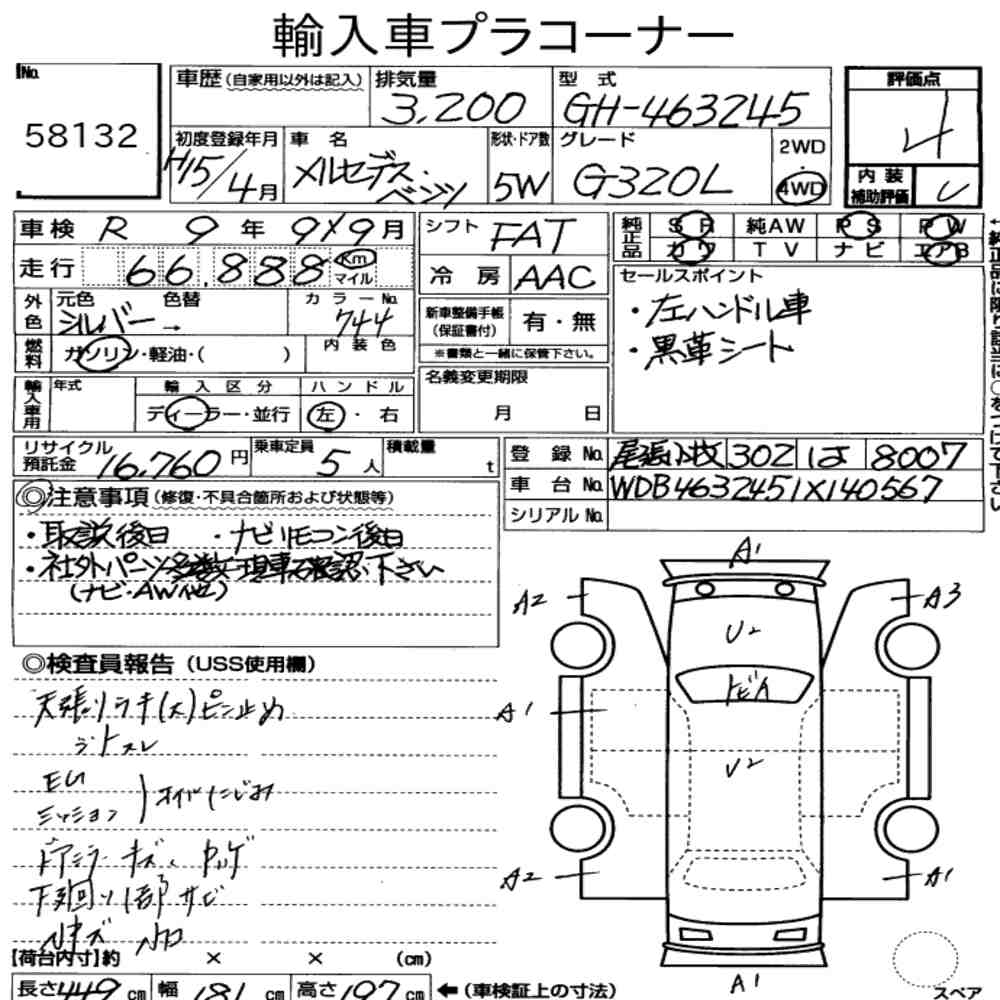 輸入車プラコーナー
No. 58132
車歴(自家用以外は記入)
排気量 3,200
型式 GH-463245
評価点 4
初度登録年月 H15/4月
車名 メルセデス・ベンツ
形状・ドア数 5W
グレード G320L
2WD・4WD
内装補助評価
車検 R 9年 9月
シフト FAT
純正品 SR 純AW PS PW
カワ TV ナビ エアB
走行 66,888 Km マイル
冷房 AAC
セールスポイント
・左ハンドル車
・黒革シート
外色 元色 シルバー→ 色替 カラーNo. 744
新車整備手帳(保証書付) 有・無
※書類と一緒に保管下さい。
燃料 ガソリン・軽油・( ) 内装色
輸入車用 年式 輸入区分 ディーラー・並行 ハンドル 左・右
名義変更期限 月 日
リサイクル預託金 16,760円 乗車定員 5人 積載量 t
登録No. 尾張小牧 302 は 8007
車台No. WDB4632451X140567
シリアルNo.
◎注意事項(修復・不具合箇所および状態等)
・取説後日 ・ナビリモコン後日
・社外パーツ多数現車確認下さい
(ナビ・AW他)
◎検査員報告(USS使用欄)
天張リラキ(大)ピン止め
ラトスレ
EG
ミッション オイルにじみ
ドアミラーキズ、
下廻り1部サビ
A1
A2 A3
U2
トビA
A1
U2
A2 A1
A1
【荷台内寸】約 × × (cm)
長さ449cm 幅181cm 高さ197cm ←(車検証上の寸法)
スペア